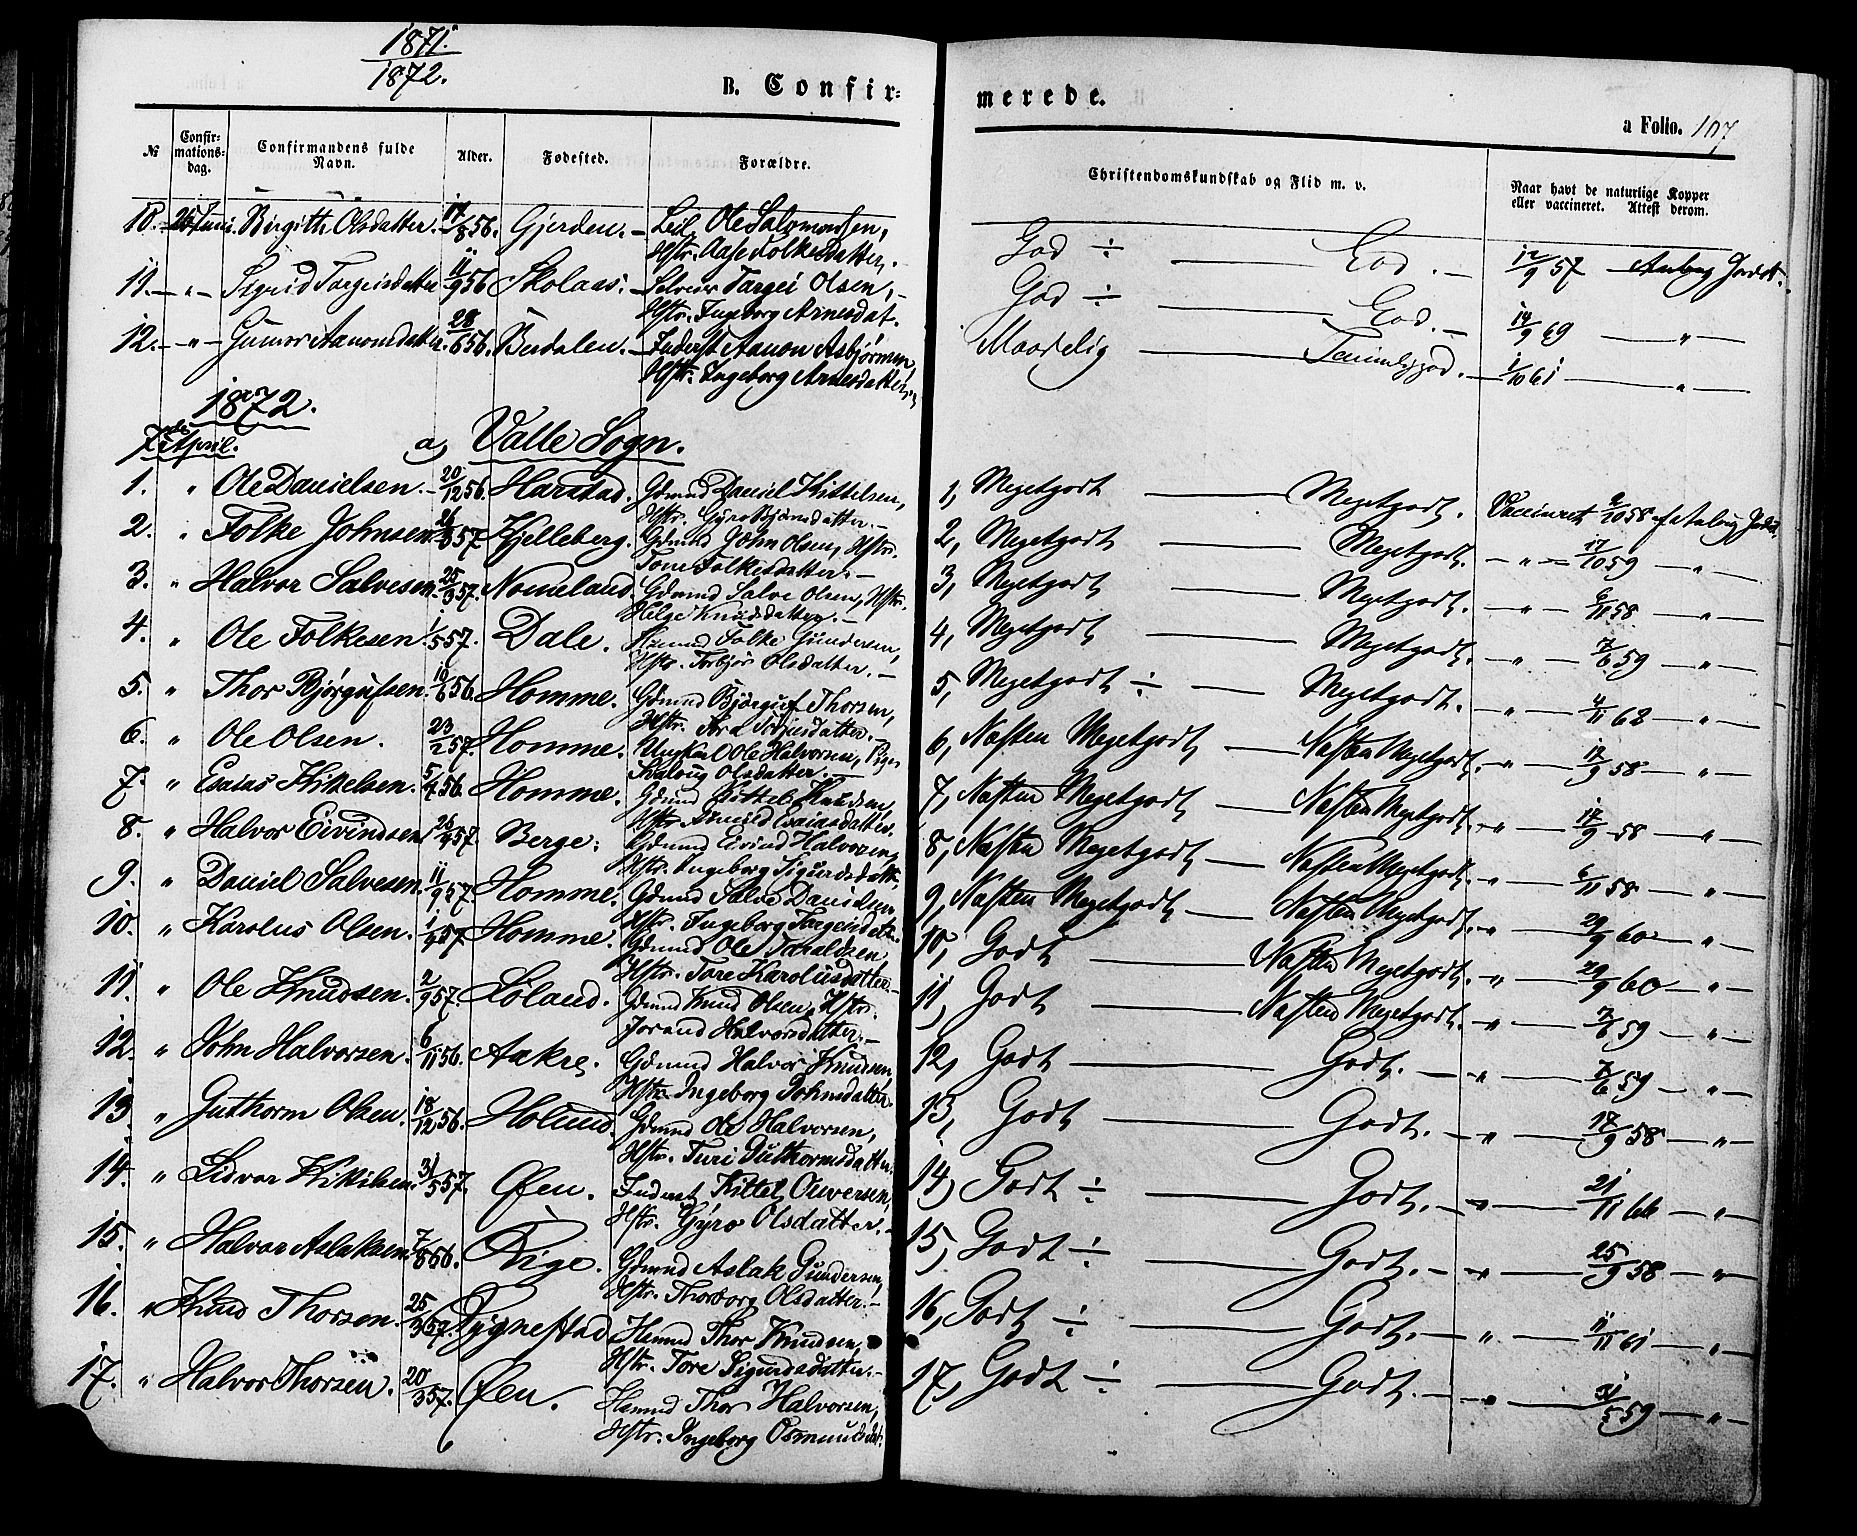 1871.
1872.
B. Confir-
merede.
a Folio. 107
№
Confir-
mations-
dag.
Confirmandens fulde
Navn.
Alder.
Fødested.
Forældre.
Christendomskundskab og Flid m. v.
Naar havt de naturlige Kopper
eller vaccineret. Attest derom.
10. 26 Juni. Birgith Olsdatter 17/8 56. Gjerden. Leil. Ole Salomonsen,
Hstr. Aase Folkesdatter.
God ÷ — God. — 12/9 57
11. " Sigrid Targeisdatter 11/9 56 Skolaas. Selveier Targei Olsen,
Hstr. Ingeborg Arnesdat.
God ÷ — God. — 14/9 69 — "
12. " Gunvor Aanonsdatter. 28/6 56. Berdalen. Inderst Aanon Asbjørnsen,
Hstr. Ingeborg Arnesdatter.
Maadelig — Temmelig god. — 1/10 61 — "
1872.
7de April. a, Valle Sogn.
1. " Ole Danielsen. 20/12 56. Harstad. Gdmnd Daniel Kittelsen,
Hstr. Gyro Bjørnsdatter.
1, Megetgodt — Megetgodt. Vaccineret 2/10 58
2. " Folke Johnsen 57. Kjelleberg. Gdmnd John Olsen, Hstr.
Tone Folkesdatter.
2, Megetgodt — Megetgodt. — " — 17/10 59 — "
3. " Halvor Salvesen. 25/9 57. Nomeland. Gdmnd Salve Olsen, Hstr.
Helge Knudsdatter.
3, Megetgodt — Megetgodt. — " — 11 58 — "
4. " Ole Folkesen 1/5 57. Dale. Folke Gundersen,
Hstr. Torbjør Olsdatter.
4, Megetgodt — Megetgodt. — " — 7/6 59 — "
5. " Thor Bjørgufsen. 10/6 56. Homme. Gdmnd Bjørguf Thorsen,
Hstr.
5, Megetgodt ÷ — Megetgodt. — " — 11 62 — "
6. " Ole Olsen. 23/2 57. Homme. Ungkarl Ole Halvorsen, Pige
Olsdatter.
6, Næsten Megetgodt — Næsten Megetgodt. — " — 17/9 58 — "
7. " Esaias Kittelsen. 5/7 56. Homme. Gdmnd Kittel Knudsen,
Hstr. Esaiasdatter.
7, Næsten Megetgodt — Næsten Megetgodt. — " — 17/9 58 — "
8. " Halvor Eivindsen 57. Berge. Gdmnd Eivind Halvorsen,
Hstr. Ingeborg Sigurdsdatter.
8, Næsten Megetgodt — Næsten Megetgodt. — " — 6/11 58 — "
9. " Daniel Salvesen. 11/9 57 Homme. Gdmnd Salve Danielsen
Hstr. Ingeborg Targeisdatter.
9, Næsten Megetgodt — Næsten Megetgodt. — " — 29/9 60 — "
10. " Karolus Olsen. 57. Homme. Gdmnd Ole Taraldsen,
Hstr. Tore Karolusdatter.
10, Godt — Næsten Megetgodt. — " — 29/9 60 — "
11. " Ole Knudsen. 2/9 57. Løland. Gdmnd Knud Olsen, Hstr.
Jorand Halvorsdatter.
11, Godt — Næsten Megetgodt. — " — 7/6 59 — "
12. " John Halvorsen. 6/11 56. Aakre. Gdmnd Halvor Knudsen,
Hstr. Ingeborg Johnsdatter.
12, Godt — Godt. — " — 7/6 59 — "
13. " Guthorm Olsen. 18/12 56. Holund. Gdmnd Ole Halvorsen,
Hstr. Turi Guthormsdatter.
13, Godt — Godt. — " — 17/9 58 — "
14. " Lidvor Kittelsen. 31/5 57. Øfen. Inderst Kittel Ouversen,
Hstr. Gyro Olsdatter.
14, Godt ÷ — Godt. — " — 21/11 66 — "
15. " Halvor Aslaksen 7/8 56. Rige. Gdmnd Aslak Gundersen,
Hstr. Thorborg Olsdatter.
15, Godt ÷ — Godt. — " — 25/9 58 — "
16. " Knud Thorsen. 25/3 57. Rygnestad Hsmnd Thor Knudsen,
Hstr. Tore Sigurdsdatter.
16, Godt ÷ — Godt. — " — 11/11 61 — "
17. " Halvor Thorsen. 20/3 57. Øfen. Hsmnd Thor Halvorsen,
Hstr. Ingeborg Osmundsdat.
17, Godt ÷ — Godt. — " — 31/5 59 — "